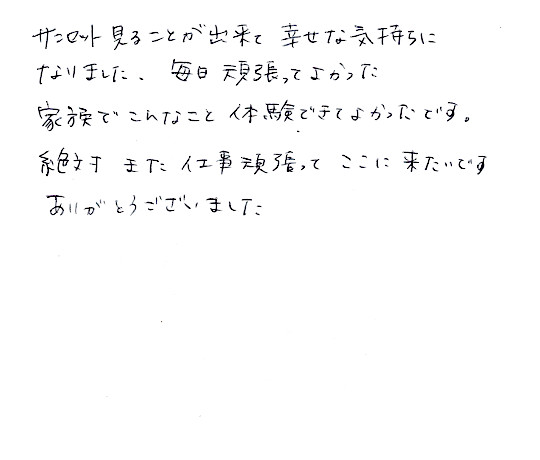 サンセット見ることが出来て 幸せな気持ちに
なりました、毎日 頑張ってよかった
家族でこんなこと 体験できてよかったです。
絶対 また 仕事頑張って ここに 来たいです
ありがとうございました